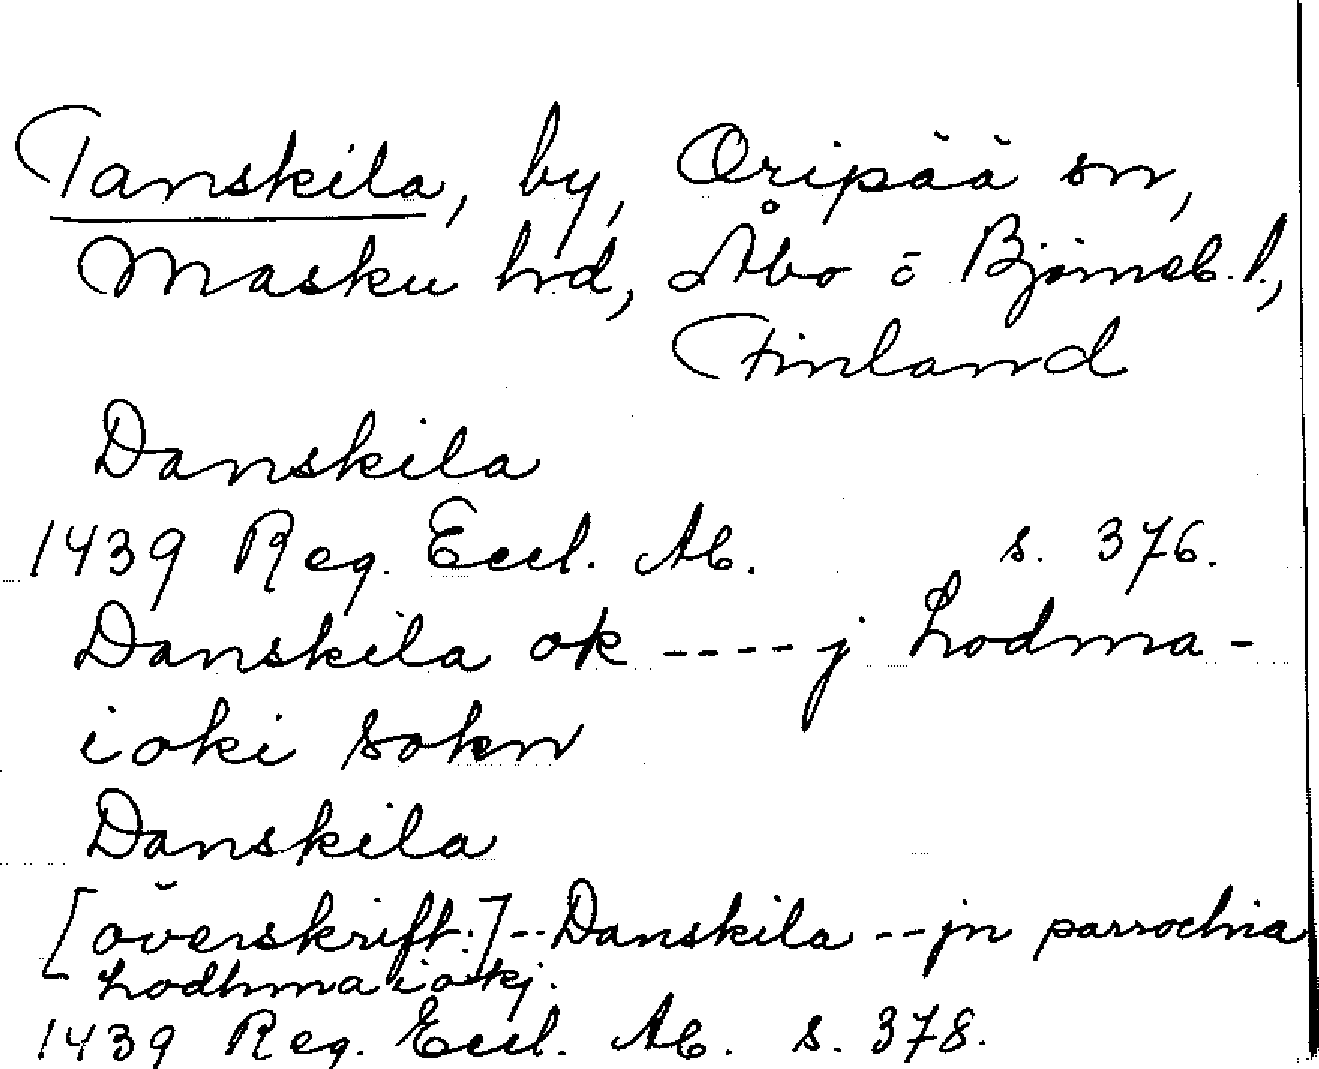 Tanskila, by, Oripää sn,
Masku hd, Åbo o Björneb. l,
Finland
Danskila
1439 Reg. Eccl. Ab. s. 376.
Danskila ok ---- j Lodma-
ioki sokn
Danskila
[överskrift:] -- Danskila -- jn parrochia
Lodhmaiokj.
1439 Reg. Eccl. Ab. s. 378.